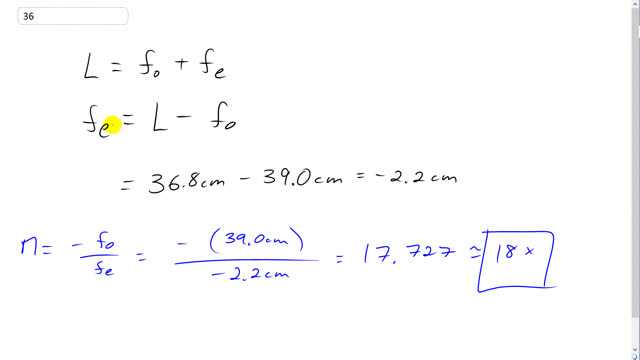 36
L = f₀ + fₑ
fₑ = L − f₀
= 36.8cm − 39.0cm = −2.2cm
M = − f₀ / fₑ = − (39.0cm) / −2.2cm = 17.727 ≈ 18 ×